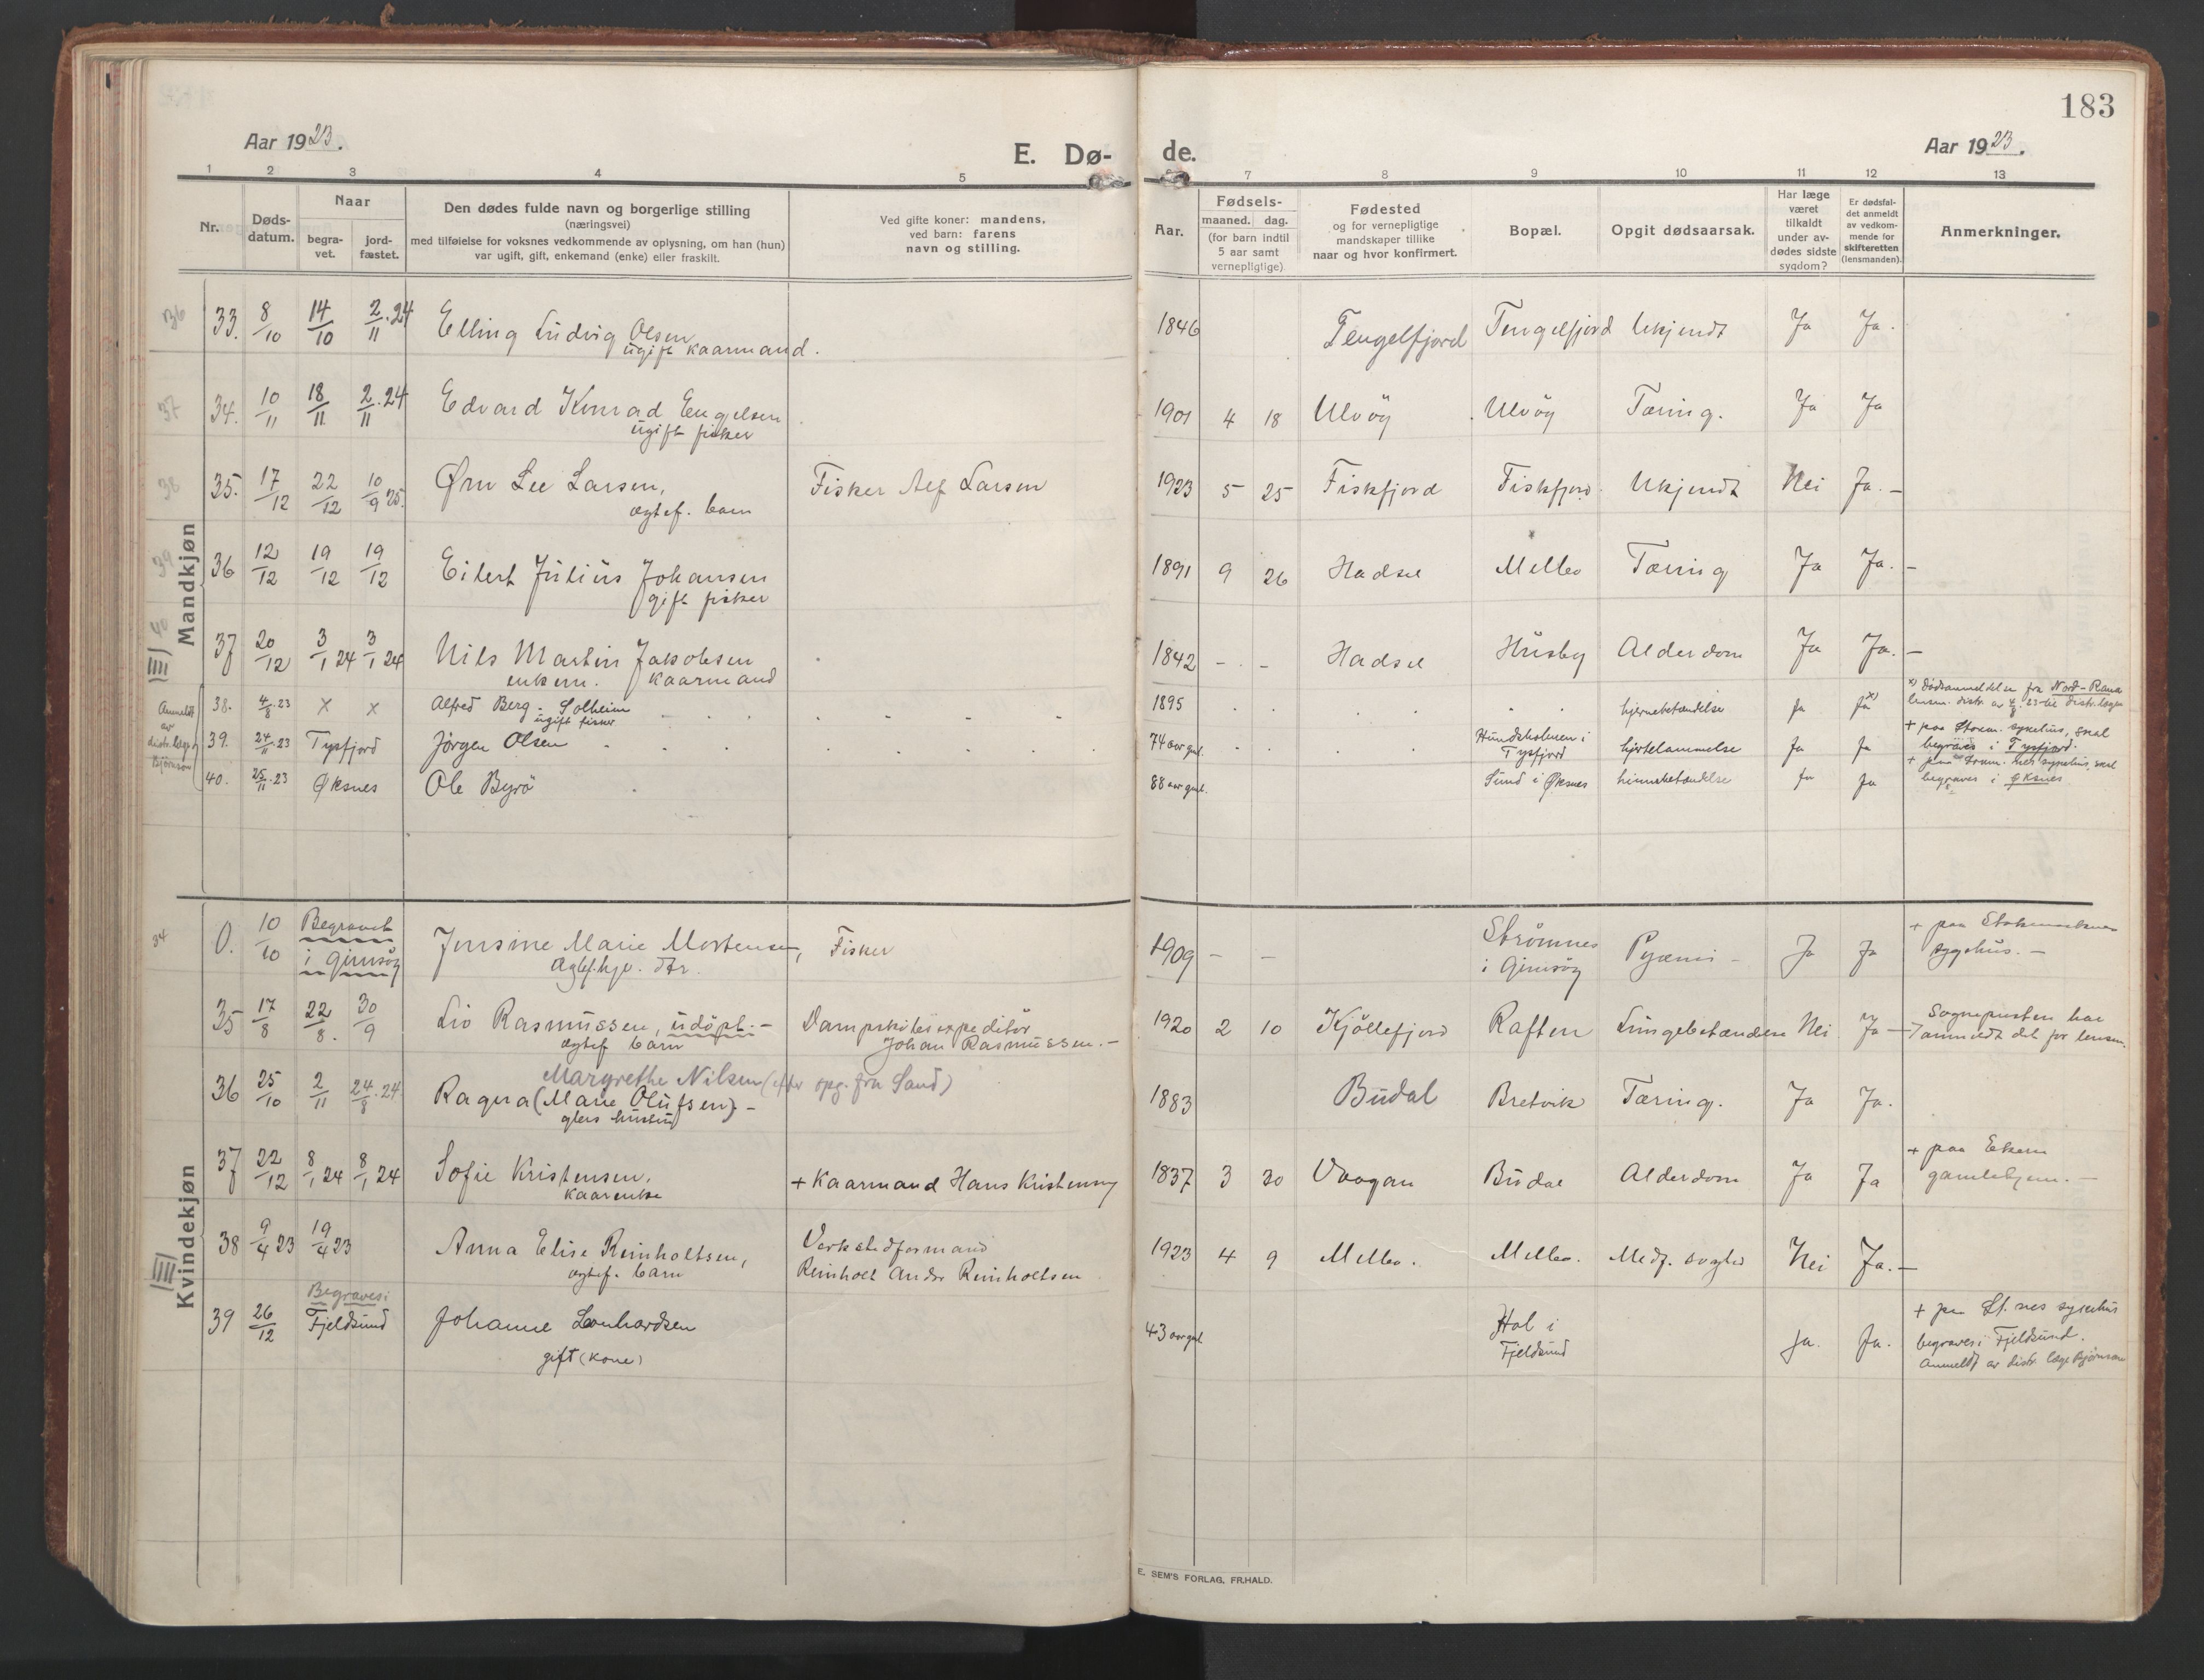 183
Aar 1923.
E. Dø-
de.
Aar 1923.
1 2 3 4 5 7 8 9 10 11 12 13
Nr.
Døds-
datum.
Naar
begra-
vet.
jord-
fæstet.
Den dødes fulde navn og borgerlige stilling
(næringsvei)
med tilføielse for voksnes vedkommende av oplysning, om han (hun)
var ugift, gift, enkemand (enke) eller fraskilt.
Ved gifte koner: mandens,
ved barn: farens
navn og stilling.
Aar.
Fødsels-
maaned. dag.
(for barn indtil
5 aar samt
vernepligtige)
Fødested
og for vernepligtige
mandskaper tillike
naar og hvor konfirmert.
Bopæl.
Opgit dødsaarsak.
Har læge
været
tilkaldt
under av-
dødes sidste
sygdom?
Er dødsfal-
det anmeldt
av vedkom-
mende for
skifteretten
(lensmanden).
Anmerkninger.
Mandkjøn
36 33. 8/10 14/10 2/11.24 Elling Ludvig Olsen 1846 Tengelfjord Tengelfjord Ukjendt Ja Ja.
ugift kaarmand.
37 34. 10/11 18/11 2/11.24 Edvard Konrad Engelsen 1901 4 18 Ulvöy Ulvöy Tæring. Ja Ja
ugift fisker
38 35. 17/12 22/12 10/9 25. Ørn Lee Larsen, Fisker Alf Larsen 1923 5 25 Fiskfjord Fiskfjord Ukjendt Nei Ja. —
ægtef. barn
39 36 12/12 19/12 19/12 Eilert Julius Johansen 1891 9 26 Hadsel Melbo Tæring Ja Ja. —
gift fisker
40 37 20/12 3/1 24 3/1 24 Nils Martin Jakobsen 1842 - - Hadsel Husby Alderdom Ja Ja. —
enkem. kaarmand
Anmeldt
av
distr. læge
Björnson
38. 4/8.23 x x Alfred Berg-Solheim 1895 hjernebetændelse Ja Ja x)
ugift fisker
x) Dödsanmeldelse fra Nord-Rana
lensm. distr. av 4/8 23 til distr. lægen
39. 24/11.23 Tysfjord Jörgen Olsen 74 aar gml. Hundholmen i
Tysfjord hjertelammelse Ja Ja
+ paa Stokm. sykehus, skal
begraves i Tysfjord.
40. 25/11.23 Øksnes Ole Byrö 88 aar gml. Sund i Øksnes Ja Ja
begraves i Øksnes
Kvindekjøn
34 0. 10/10 Begravet
i Gimsöy
Jensine Marie Mortensen, Fisker 1909 - - Strömnes
i Gimsöy Pyæmi - Ja Ja
+ paa Stokmarknes
sygehus. —
35 17/8 22/8. 30/9 Liv Rasmussen, udöpt. - Dampskibsexpeditör 1920 2 10 Kjöllefjord Raften Lungebetændelse Nei Ja —
ægtef barn Johan Rasmussen. -
Sogneprest en har
anmeldt det for lensm.
Margrethe Nilsen (efter opg. fra Sand)
36 25/10 2/11 24/8.24 Ragna (Marie Olufsen) - 1883 Budal Bretvik Tæring. Ja Ja.
37 22/12 8/1 24 8/1 24 Sofie Kristensen, + Kaarmand Hans Kristensen 1837 3 30 Vaagan Budal Alderdom Ja Ja
kaarenke
+ paa
gamlehjem. —
38 9/4 23 19/4 23 Anna Elise Reinholtsen, Verkstedformand 1923 4 9 Melbo. Melbo. Medf. svaghed Nei Ja. —
ægtef. barn Reinholt Andr Reinholtsen
39 26/12 Begraves i
Fjeldsund
Johanne Leonhardsen 43 aar gml. Hol i
Fjeldsund Ja. Ja.
gift (kone)
+ paa St. nes sykehus
begraves i Fjeldsund.
Anmeldt av distr. læge Björnson
E. SEM'S FORLAG, FR.HALD.